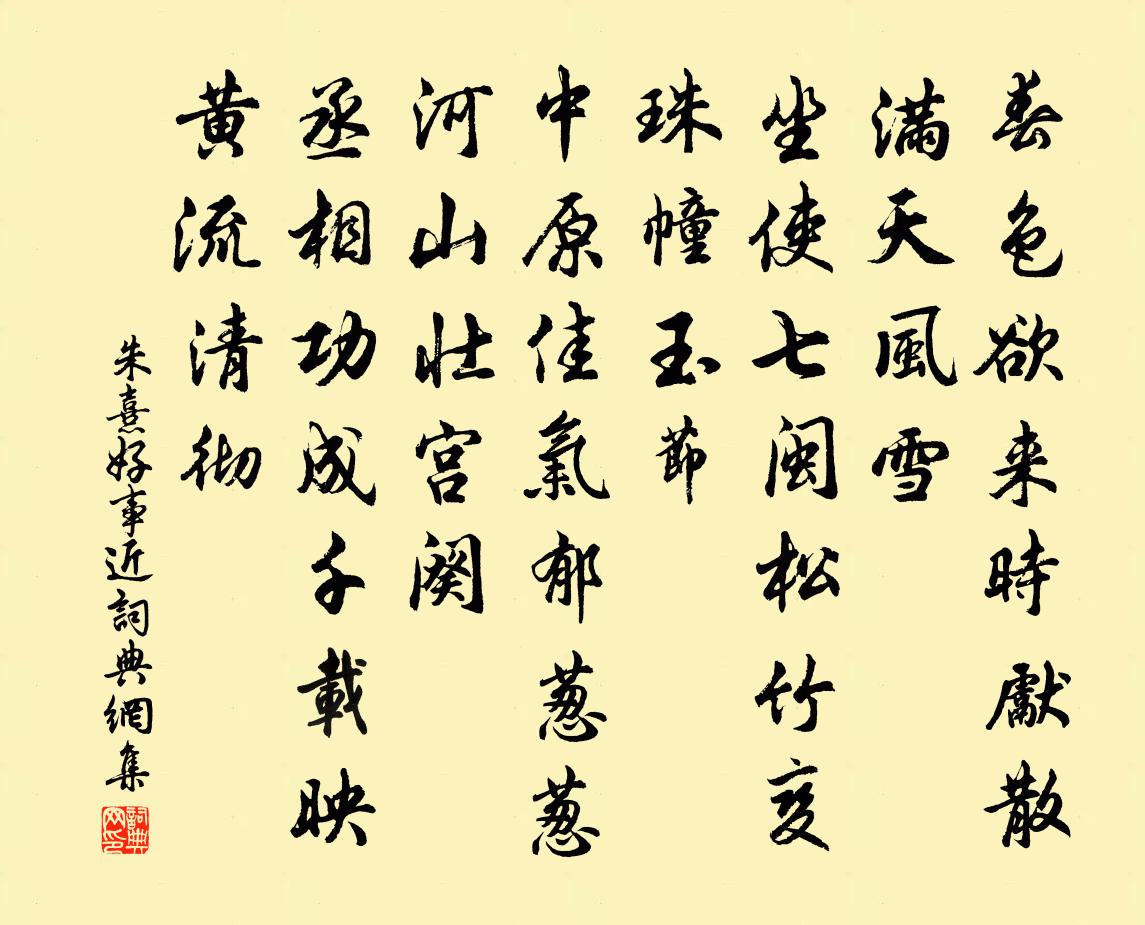 春色欲来時獻散
滿天風雪
坐使七閩松竹变
珠幢玉節
中原佳氣郁葱葱
河山壯宮闕
丞相功成千載映
黄流清彻
朱熹好事近詞典網集
詞典网印